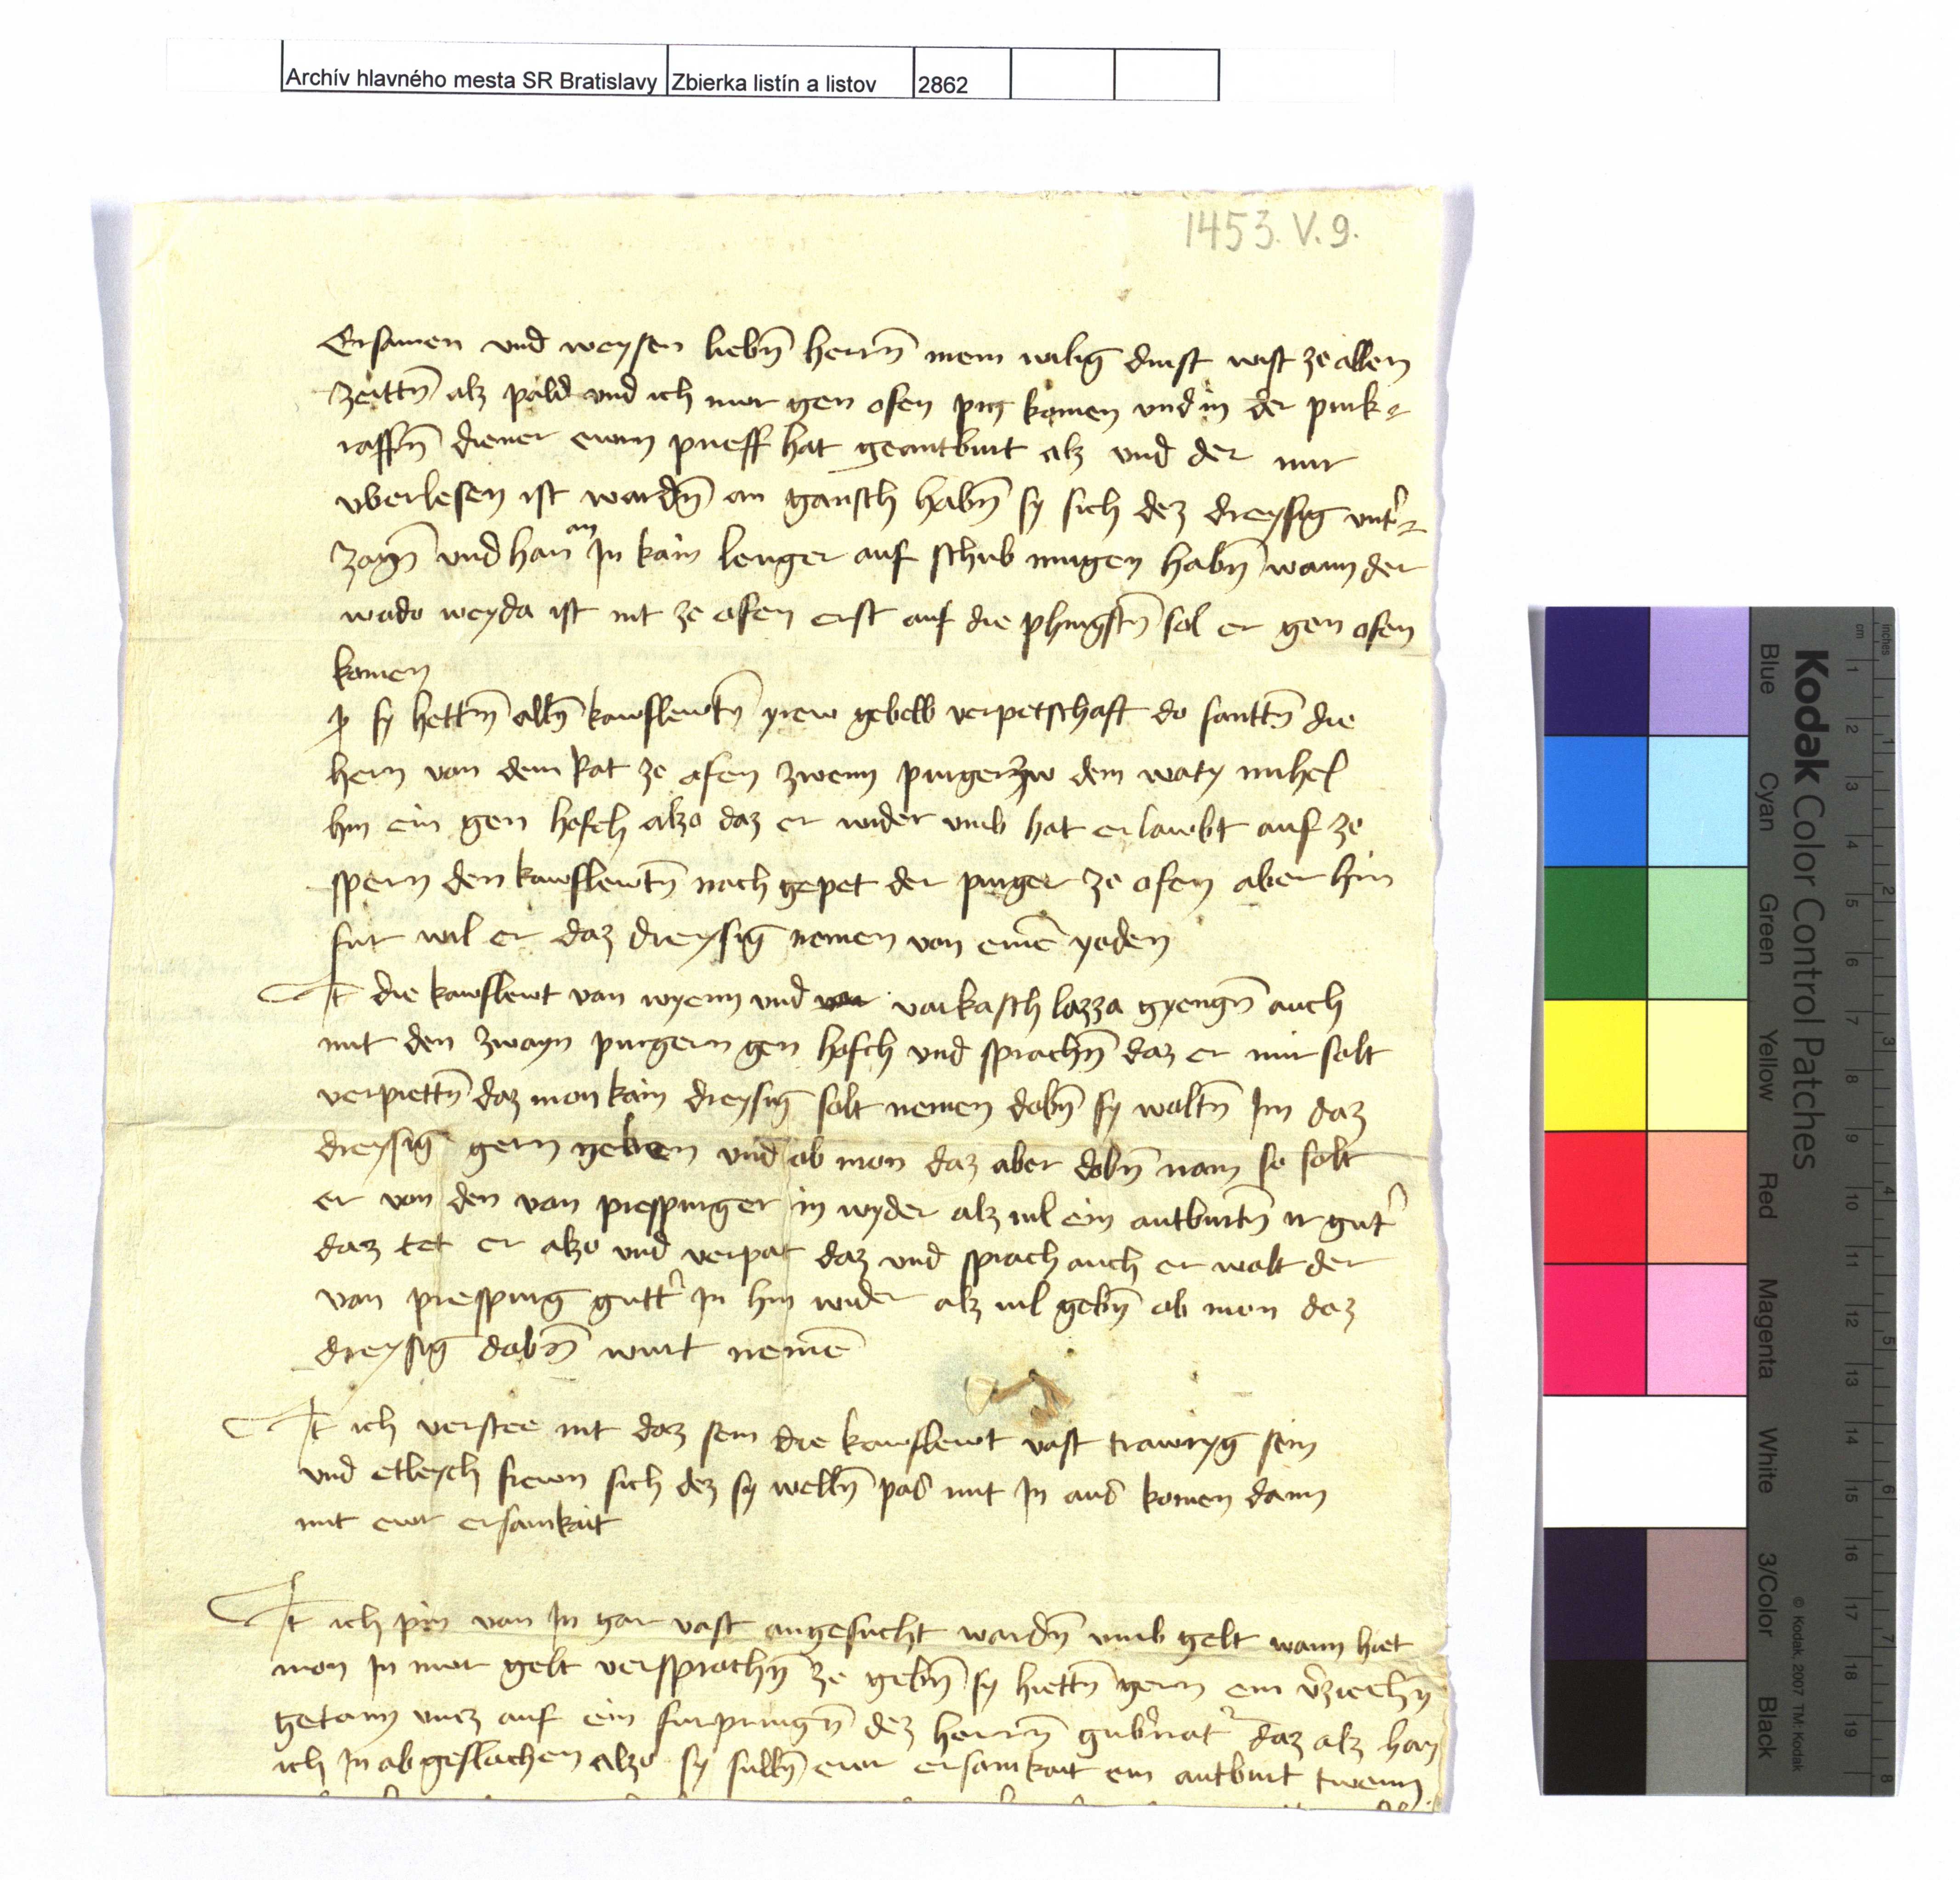 Archív hlavného mesta SR Bratislavy Zbierka listín a listov 2862
1453. V. 9.
Ersamen vnd weysen liebn̄ herrn̄ mein wilig dinst wist ze allen
zeittn̄ alz pald vnd ich nwr gen ofen pin komen vnd in der purk
raffn̄ diener ewrn prieff hat geantburt alz vnd der nur
vberlesen ist wardn̄ an gansch habn̄ sy sich dez dreysig vnt
zogn̄ vnd han an In kain lenger auf schub mugen habn̄ wann der
wado weyda ist nit ze ofen erst auf die phingstn̄ sol er gen ofen
komen
sy hettn̄ alln̄ kawflewtn̄ yrew gebelb verpetschaft do santtn̄ die
hern von dem Rat ze ofen zwenn purger zw dem waty mihel
hin ein gen hofch alzo daz er wider vmb hat erlawbt auf ze
spern den kawflewtn̄ nach gepet der purger ze ofen aber hin
fur wil er daz dreysig nemen von eine yeden
It die kawflewt van wyenn vnd varkasch lazza gyengn̄ auch
mit den zwayn purgern gen hofch vnd sprachn̄ daz er mir solt
verpiettn̄ daz mon kain dreysig solt nemen dobn̄ sy woltn̄ Im daz
dreysig gern geben vnd ob mon daz aber dobn̄ nam so solt
er von den van prespurger in wyder alz uil ein antburtn̄ ir gut
daz tet er alzo vnd verpat daz vnd sprach auch er wolt der
van prespurg gutt In hin wider alz uil gebn̄ ob mon daz
dreysig dabn̄ wurt neme
It ich verstee nit daz sein die kawflewt vast trawryg sein
vnd etleych frewn sich dez sy welln̄ pas mit In aus komen dann
mit ewr ersamkait
It ich pin van In gar vast angesucht wardn̄ vmb gelt wann hiet
mon In nwr gelt versprochn̄ ze gebn̄ sy hiettn̄ gern ein verziechn̄
getann vncz auf ein furpringn̄ dez herrn̄ gubnat daz alz han
ich In abgeslachen alzo sy sulln̄ ewr ersamkait ein antburt
Kodak Color Control Patches
© Kodak, 2007 TM: Kodak
Blue Cyan Green Yellow Red Magenta White 3/Color Black
inches 1 2 3 4 5 6 7 8
cm 1 2 3 4 5 6 7 8 9 10 11 12 13 14 15 16 17 18 19